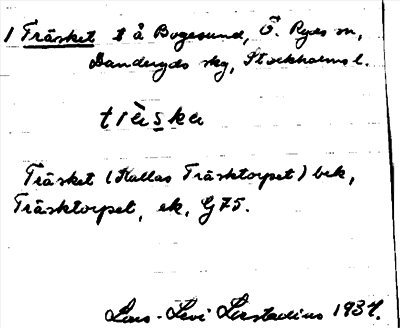 1 Träsket t å Bogesund, Ö. Ryds sn,
Danderyds skg, Stockholms l.
träska
Träsket (Kallas Träsktorpet) bek,
Träsktorpet, ek, G 75.
Lars-Levi Læstadius 1937.